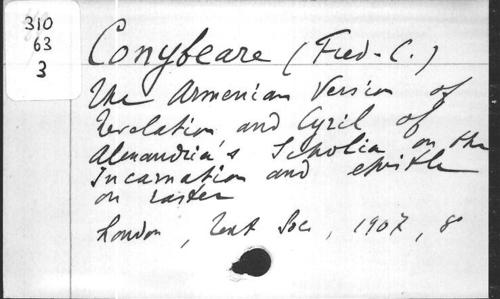 310
63
3
Conybeare (Fred. C.)
The Armenian Version of
Revelation and Cyril of
Alexandria's Scholia on the
Incarnation and epistle
on Easter
London, Text Soc, 1907, 8